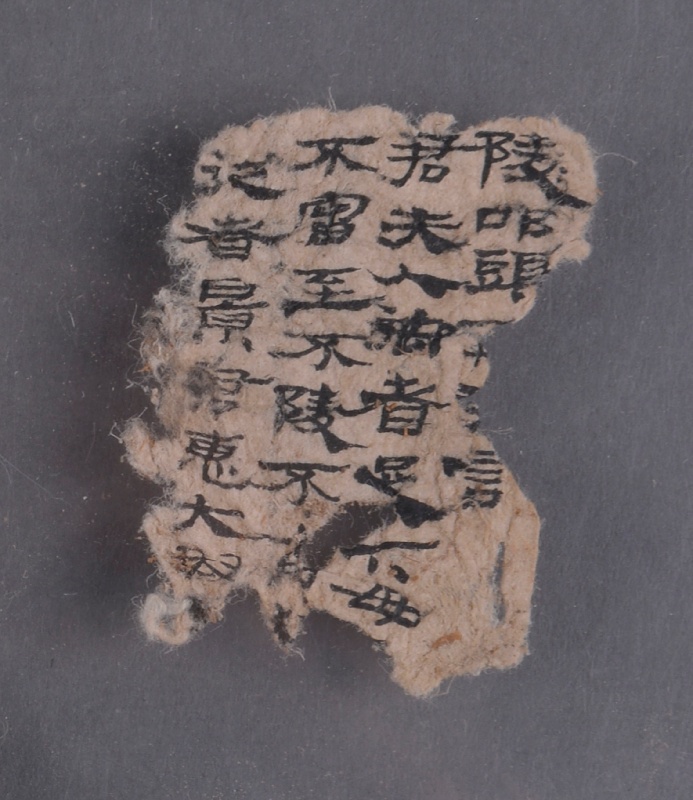 陵叩頭言
君夫人御者足下毋
不當至不陵不
者景君惠大